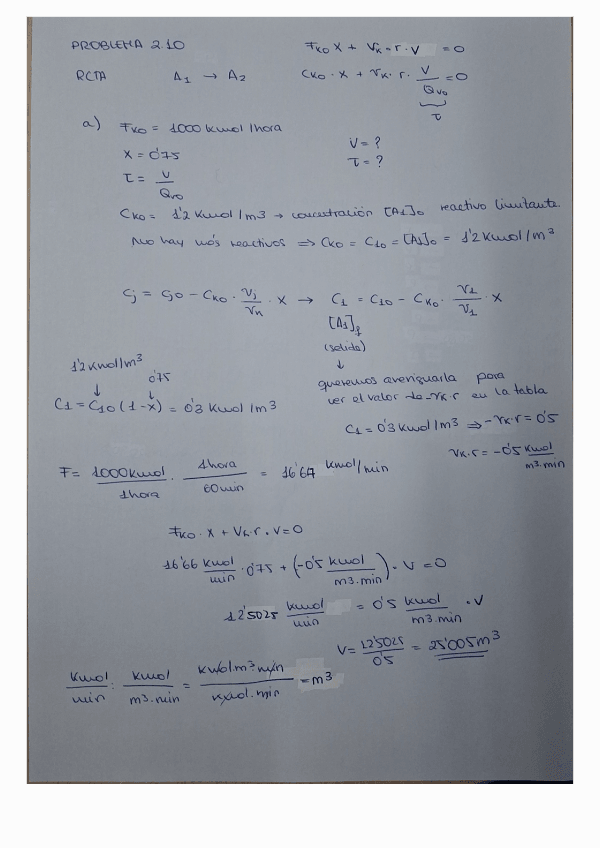 PROBLEMA 2.10
F_K0 X + V_K · r · V = 0
RCTA A1 → A2
C_K0 · X + V_K · r · V/Q_V0 = 0
τ
a) F_K0 = 1000 Kmol/hora
X = 0'75
V = ?
τ = V/Q_V0
τ = ?
C_K0 = 1'2 Kmol/m3 → concentración [A1]0 reactivo limitante.
No hay más reactivos ⇒ C_K0 = C_10 = [A1]0 = 1'2 Kmol/m³
Cj = Cj0 - C_K0 · Vj/V_K · X → C1 = C10 - C_K0 · V1/V1 · X
[A1]f
(salida)
↓
queremos averiguarla para
ver el valor de -V_K·r en la tabla
1'2 Kmol/m³
↓
0'75
↓
C1 = C10 (1-X) = 0'3 Kmol/m3
C1 = 0'3 Kmol/m3 ⇒ -V_K·r = 0'5
V_K·r = -0'5 Kmol/m³·min
F = 1000 Kmol/1 hora · 1 hora/60 min = 16'67 Kmol/min
F_K0 · X + V_K·r·V = 0
16'66 Kmol/min · 0'75 + (-0'5 Kmol/m3·min) · V = 0
12'5025 Kmol/min = 0'5 Kmol/m3·min · V
V = 12'5025/0'5 = 25'005 m³
Kmol/min : Kmol/m3·min = Kmol·m³·min/Kmol·min = m³